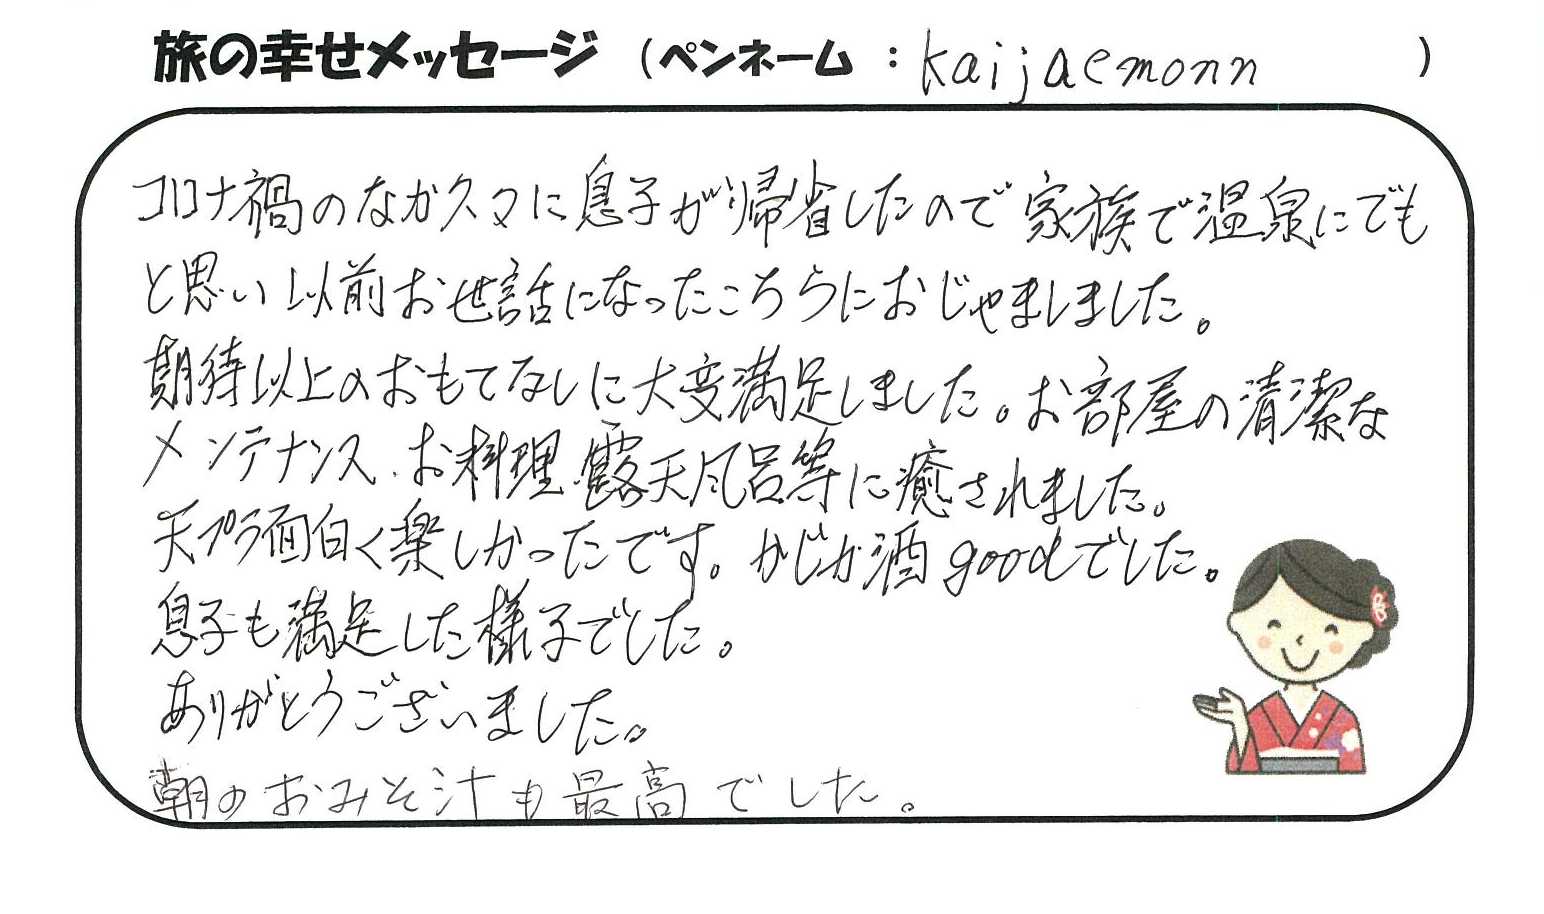 旅の幸せメッセージ （ペンネーム ： kaijaemonn ）
コロナ禍のなか久々に息子が帰省したので家族で温泉にでも
と思い以前お世話になったこちらにおじゃましました。
期待以上のおもてなしに大変満足しました。お部屋の清潔な
メンテナンス、お料理、露天風呂等に癒されました。
天プラ面白く楽しかったです。かじか酒goodでした。
息子も満足した様子でした。
ありがとうございました。
朝のおみそ汁も最高でした。